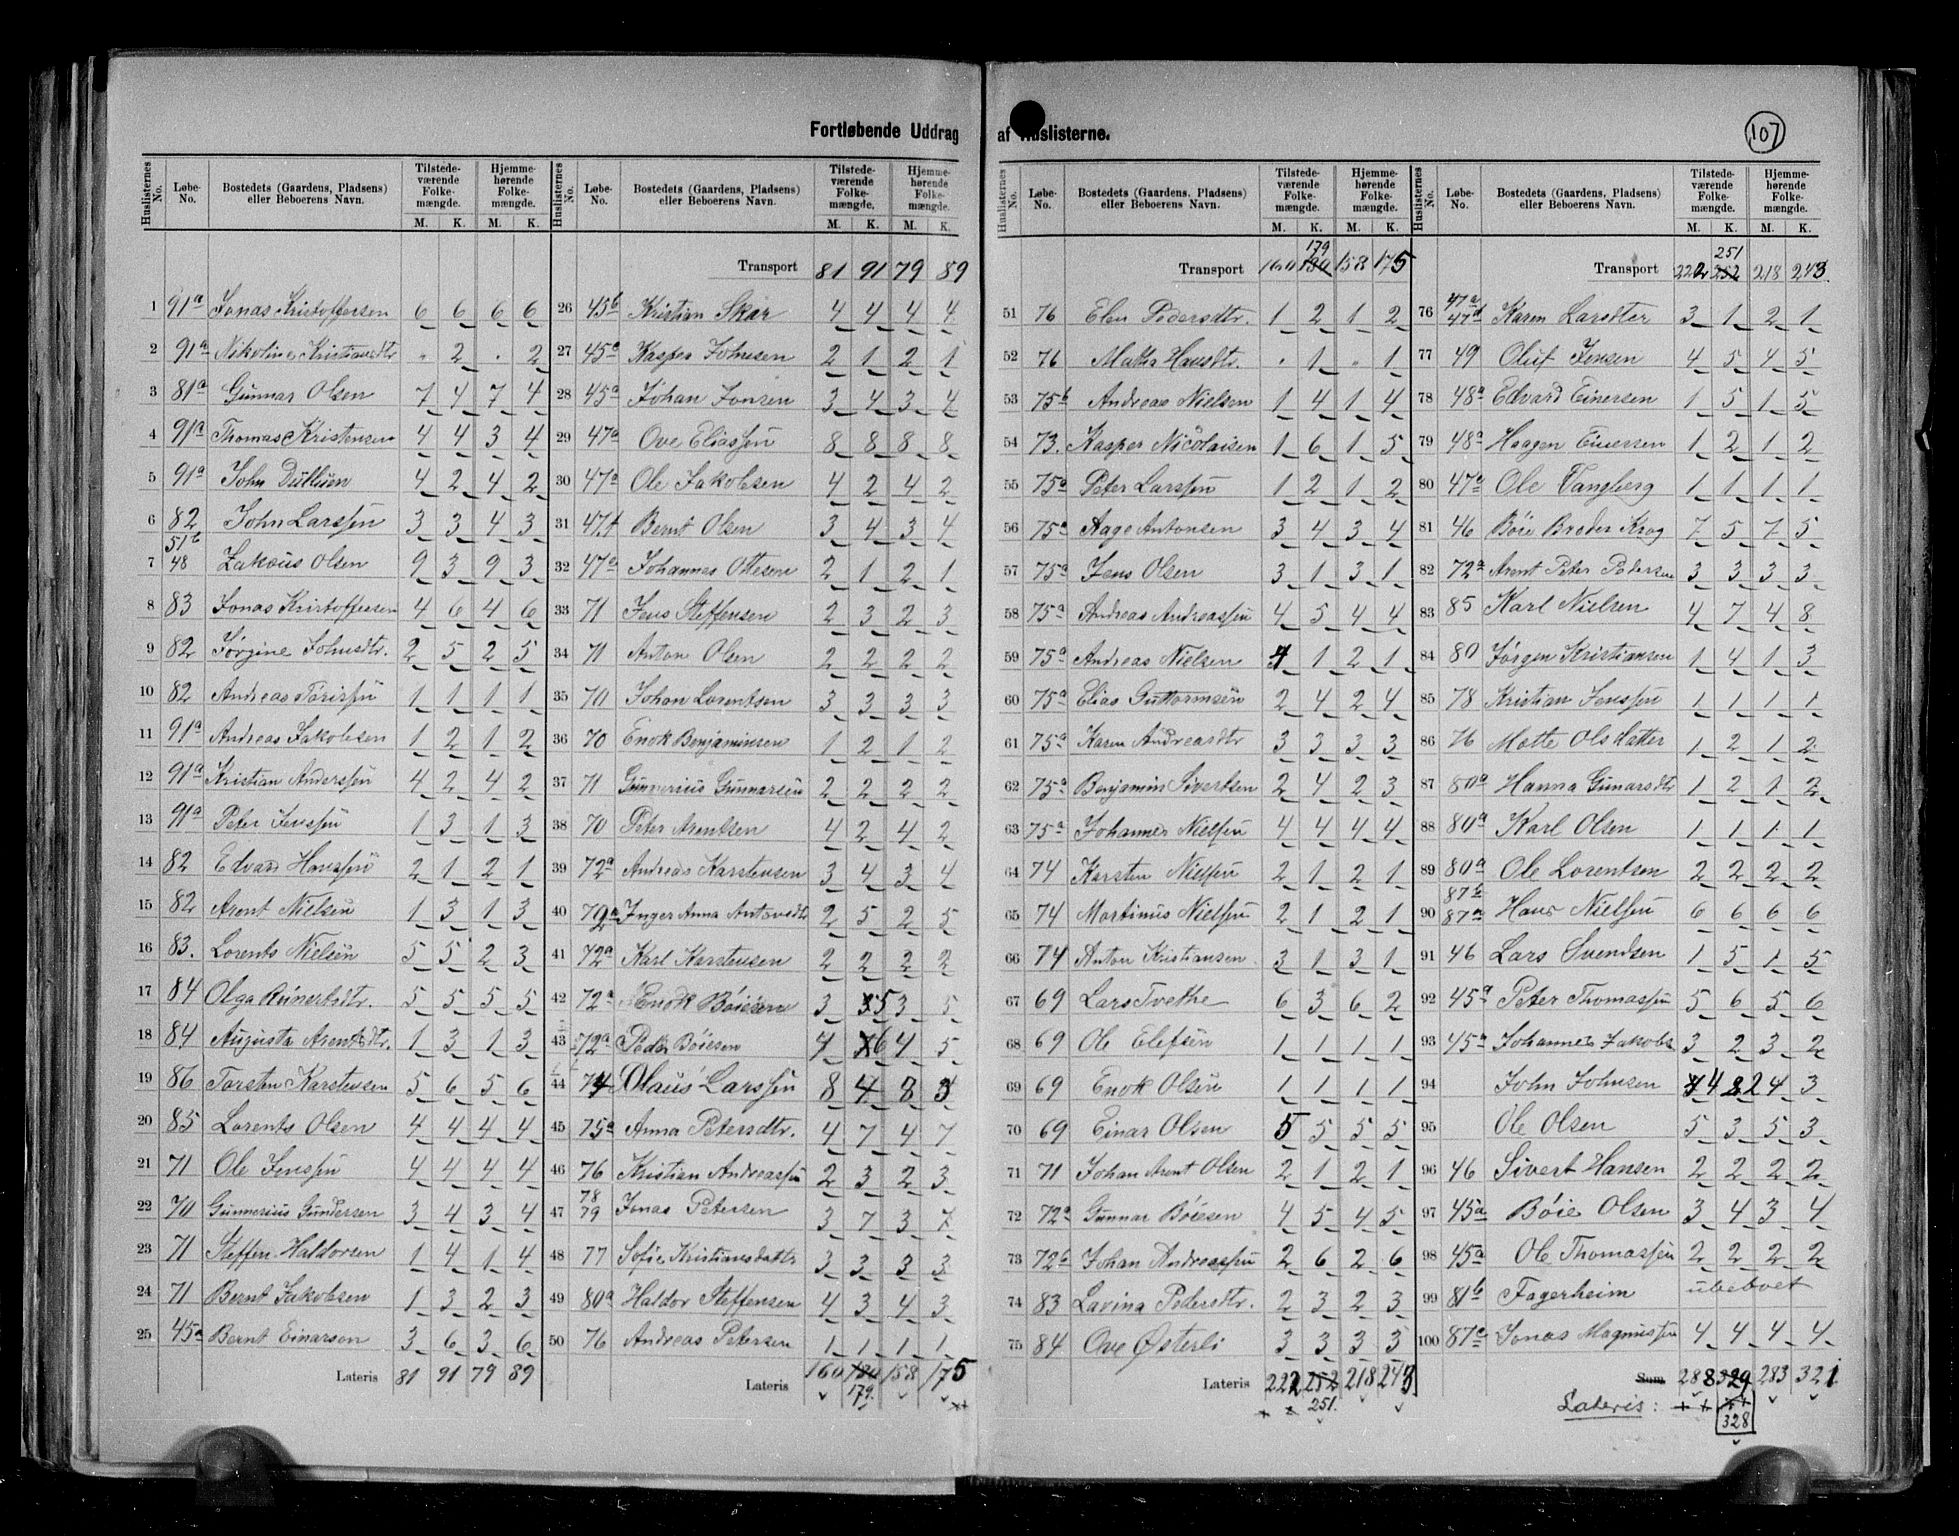 107
Fortløbende Uddrag af Huslisterne.
Huslisternes No. Løbe-No. Bostedets (Gaardens, Pladsens) eller Beboerens Navn. Tilstedeværende Folkemængde. M. K. Hjemmehørende Folkemængde. M. K.
1 91a Jonas Kristoffersen 6 6 6 6
2 91a Nikoline Kristiansdtr " 2 " 2
3 81a Gunnar Olsen 7 4 7 4
4 91a Thomas Kristensen 4 4 3 4
5 91a John 4 2 4 2
6 82 John Larssen 3 3 4 3
7 51b 48 Zakæus Olsen 9 3 9 3
8 83 Jonas Kristoffersen 4 6 4 6
9 82 Jørgine Johnsdtr. 2 5 2 5
10 82 Andreas 1 1 1 1
11 91a Andreas Jakobsen 1 2 1 2
12 91a Kristian Anderssen 4 2 4 2
13 91a Peter Jenssen 1 3 1 3
14 82 Edvard Hanssen 2 1 2 1
15 82 Arent Nielsen 1 3 1 3
16 83. Lorents Nielsen 5 5 2 3
17 84 Olga 5 5 5 5
18 84 Augusta Arentsdtr. 1 3 1 3
19 86 Torsten Karstensen 5 6 5 6
20 85 Lorents Olsen 4 4 4 4
21 71 Ole Jenssen 4 4 4 4
22 70 Gunnerius Gundersen 3 4 3 4
23 71 Steffen Haldorsen 1 4 1 4
24 71 Bernt Jakobsen 1 3 2 3
25 45a Bernt Einarsen 3 6 3 6
Lateris 81 91 79 89
Huslisternes No. Løbe-No. Bostedets (Gaardens, Pladsens) eller Beboerens Navn. Tilstedeværende Folkemængde. M. K. Hjemmehørende Folkemængde. M. K.
Transport 81 91 79 89
26 45b Kristian Skar 4 4 4 4
27 45a Kasper Johnsen 2 1 2 1
28 45a Johan Jonsen 3 4 3 4
29 47a Ove Eliassen 8 8 8 8
30 47a Ole Jakobsen 4 2 4 2
31 47.1 Bernt Olsen 3 4 3 4
32 47a Johannes Ottesen 2 1 2 1
33 71 Jens Steffensen 2 3 2 3
34 71 Anton Olsen 2 2 2 2
35 70 Johan Lorentsen 3 3 3 3
36 70 Enok Benjaminsen 1 2 1 2
37 71 Gunnerius Gunnarsen 2 2 2 2
38 70 Peter Arentsen 4 2 4 2
39 72a Andreas Karstensen 3 4 3 4
40 72a Inger Anna Antonsdtr 2 5 2 5
41 72a Karl Karstensen 2 2 2 2
42 72a Enok Bøiesen 3 5 3 5
43 72a Peder Bøiesen 4 6 4 5
44 74 Olaus Larssen 8 4 8 3
45 75a Anna Petersdtr. 4 7 4 7
46 76 Kristian Andreassen 2 3 2 3
47 78 79 Jonas Petersen 3 7 3 7
48 77 Sofie Kristiansdattr 3 3 3 3
49 80a Haldor Steffensen 4 3 4 3
50 76 Andreas Petersen 1 1 1 1
Lateris 160 180 158 175
179.
Huslisternes No. Løbe-No. Bostedets (Gaardens, Pladsens) eller Beboerens Navn. Tilstedeværende Folkemængde. M. K. Hjemmehørende Folkemængde. M. K.
179
Transport 160 180 158 175
51 76 Elen Pedersdtr. 1 2 1 2
52 76 Hansdtr. " 1 " 1
53 75b Andreas Nielsen 1 4 1 4
54 73. Kasper Nicolaisen 1 6 1 5
55 75a Peter Larssen 1 2 1 2
56 75a Aage Antonsen 3 4 3 4
57 75a Jens Olsen 3 1 3 1
58 75a Andreas Andreassen 4 5 4 4
59 75a Andreas Nielsen 1 2 1
60 75a Elias Guttormsen 2 4 2 4
61 75a Karen Andreasdtr 3 3 3 3
62 75a Benjamin Sivertsen 2 4 2 3
63 75a Johannes Nielsen 4 4 4 4
64 74 Karsten Nielsen 2 1 2 1
65 74 Martinus Nielsen 2 1 2 1
66 74 Anton Kristiansen 3 1 3 1
67 69 Lars Tvethe 6 3 6 2
68 69 Ole Elefsen 1 1 1 1
69 69 Enok Olsen 1 1 1 1
70 69 Einar Olsen 5 5 5 5
71 71 Johan Arent Olsen 2 1 2 1
72 72a Gunnar Bøiesen 4 5 4 5
73 72b Johan Andreassen 2 6 2 6
74 83 Lavina Pedersdtr. 2 3 2 3
75 84 Ove Østerli 3 3 3 3
Lateris 222 252 218 243
251.
Huslisternes No. Løbe-No. Bostedets (Gaardens, Pladsens) eller Beboerens Navn. Tilstedeværende Folkemængde. M. K. Hjemmehørende Folkemængde. M. K.
251
Transport 222 252 218 243
76 47a 47d Karen Larsdter 3 1 2 1
77 49 Oluf Jensen 4 5 4 5
78 48a Edvard Einersen 1 5 1 5
79 48a Haagen Einersen 1 2 1 2
80 47a Ole Vangberg 1 1 1 1
81 46 Bøie Broder Krog 7 5 7 5
82 72a Arent Peter Pedersen 3 3 3 3
83 85 Karl Nielsen 4 7 4 8
84 80 Jørgen Kristiansen 1 4 1 3
85 78 Kristian Jenssen 1 1 1 1
86 76 Mette Olsdatter 1 2 1 2
87 80a Hanna Gunarsdtr 1 2 1 2
88 80a Karl Olsen 1 1 1 1
89 80a Ole Lorentsen 2 2 2 2
90 87b 87a Hans Nielsen 6 6 6 6
91 46 Lars Svendsen 1 5 1 5
92 45a Peter Thomassen 5 6 5 6
93 45a Johannes Jakobs 3 2 3 2
94 John Johnsen 4 2 4 3
95 Ole Olsen 5 3 5 3
96 46 Sivert Hansen 2 2 2 2
97 45a Bøie Olsen 3 4 3 4
98 45a Ole Thomassen 2 2 2 2
99 81b Fagerheim ubeboet
100 87c Jonas Magnussen 4 4 4 4
Sum 288 329 283 321
Lateris: 328